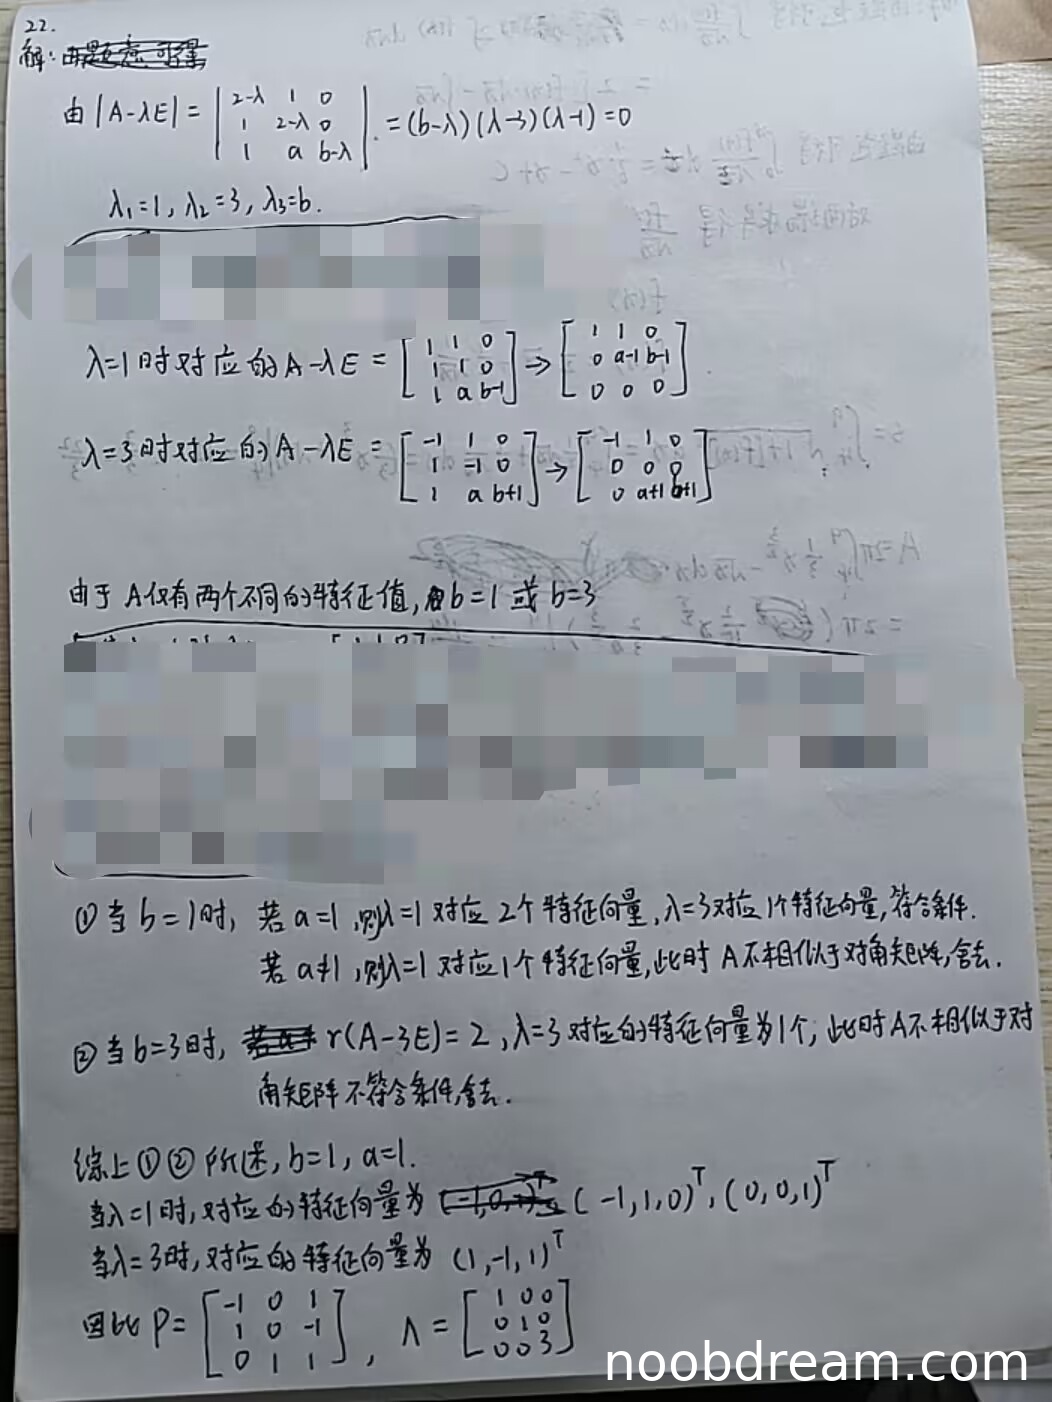 22.
解: 由题意可得
由 |A-λE| = | 2-λ 1 0 |
| 1 2-λ 0 |
| 1 a b-λ | . = (b-λ)(λ-3)(λ-1)=0
λ₁=1, λ₂=3, λ₃=b.
λ=1时对应的A-λE = [ 1 1 0 ] → [ 1 1 0 ]
[ 1 1 0 ] [ 0 a-1 b-1 ]
[ 1 a b-1 ] [ 0 0 0 ]
λ=3时对应的A-λE = [ -1 1 0 ] → [ -1 1 0 ]
[ 1 -1 0 ] [ 0 0 0 ]
[ 1 a b+1 ] [ 0 a+1 b+1 ]
由于A仅有两个不同的特征值, b=1 或 b=3
①当b=1时, 若a=1,则λ=1对应2个特征向量,λ=3对应1个特征向量,符合条件.
若a≠1,则λ=1对应1个特征向量,此时A不相似于对角矩阵,舍去.
②当b=3时, r(A-3E)=2, λ=3对应的特征向量为1个; 此时A不相似于对
角矩阵不符合条件,舍去.
综上①②所述, b=1, a=1.
当λ=1时,对应的特征向量为 (-1,1,0)ᵀ, (0,0,1)ᵀ
当λ=3时,对应的特征向量为 (1,-1,1)ᵀ
因此 P= [ -1 0 1 ] , Λ = [ 1 0 0 ]
[ 1 0 -1 ] [ 0 1 0 ]
[ 0 1 1 ] [ 0 0 3 ]
noobdream.com